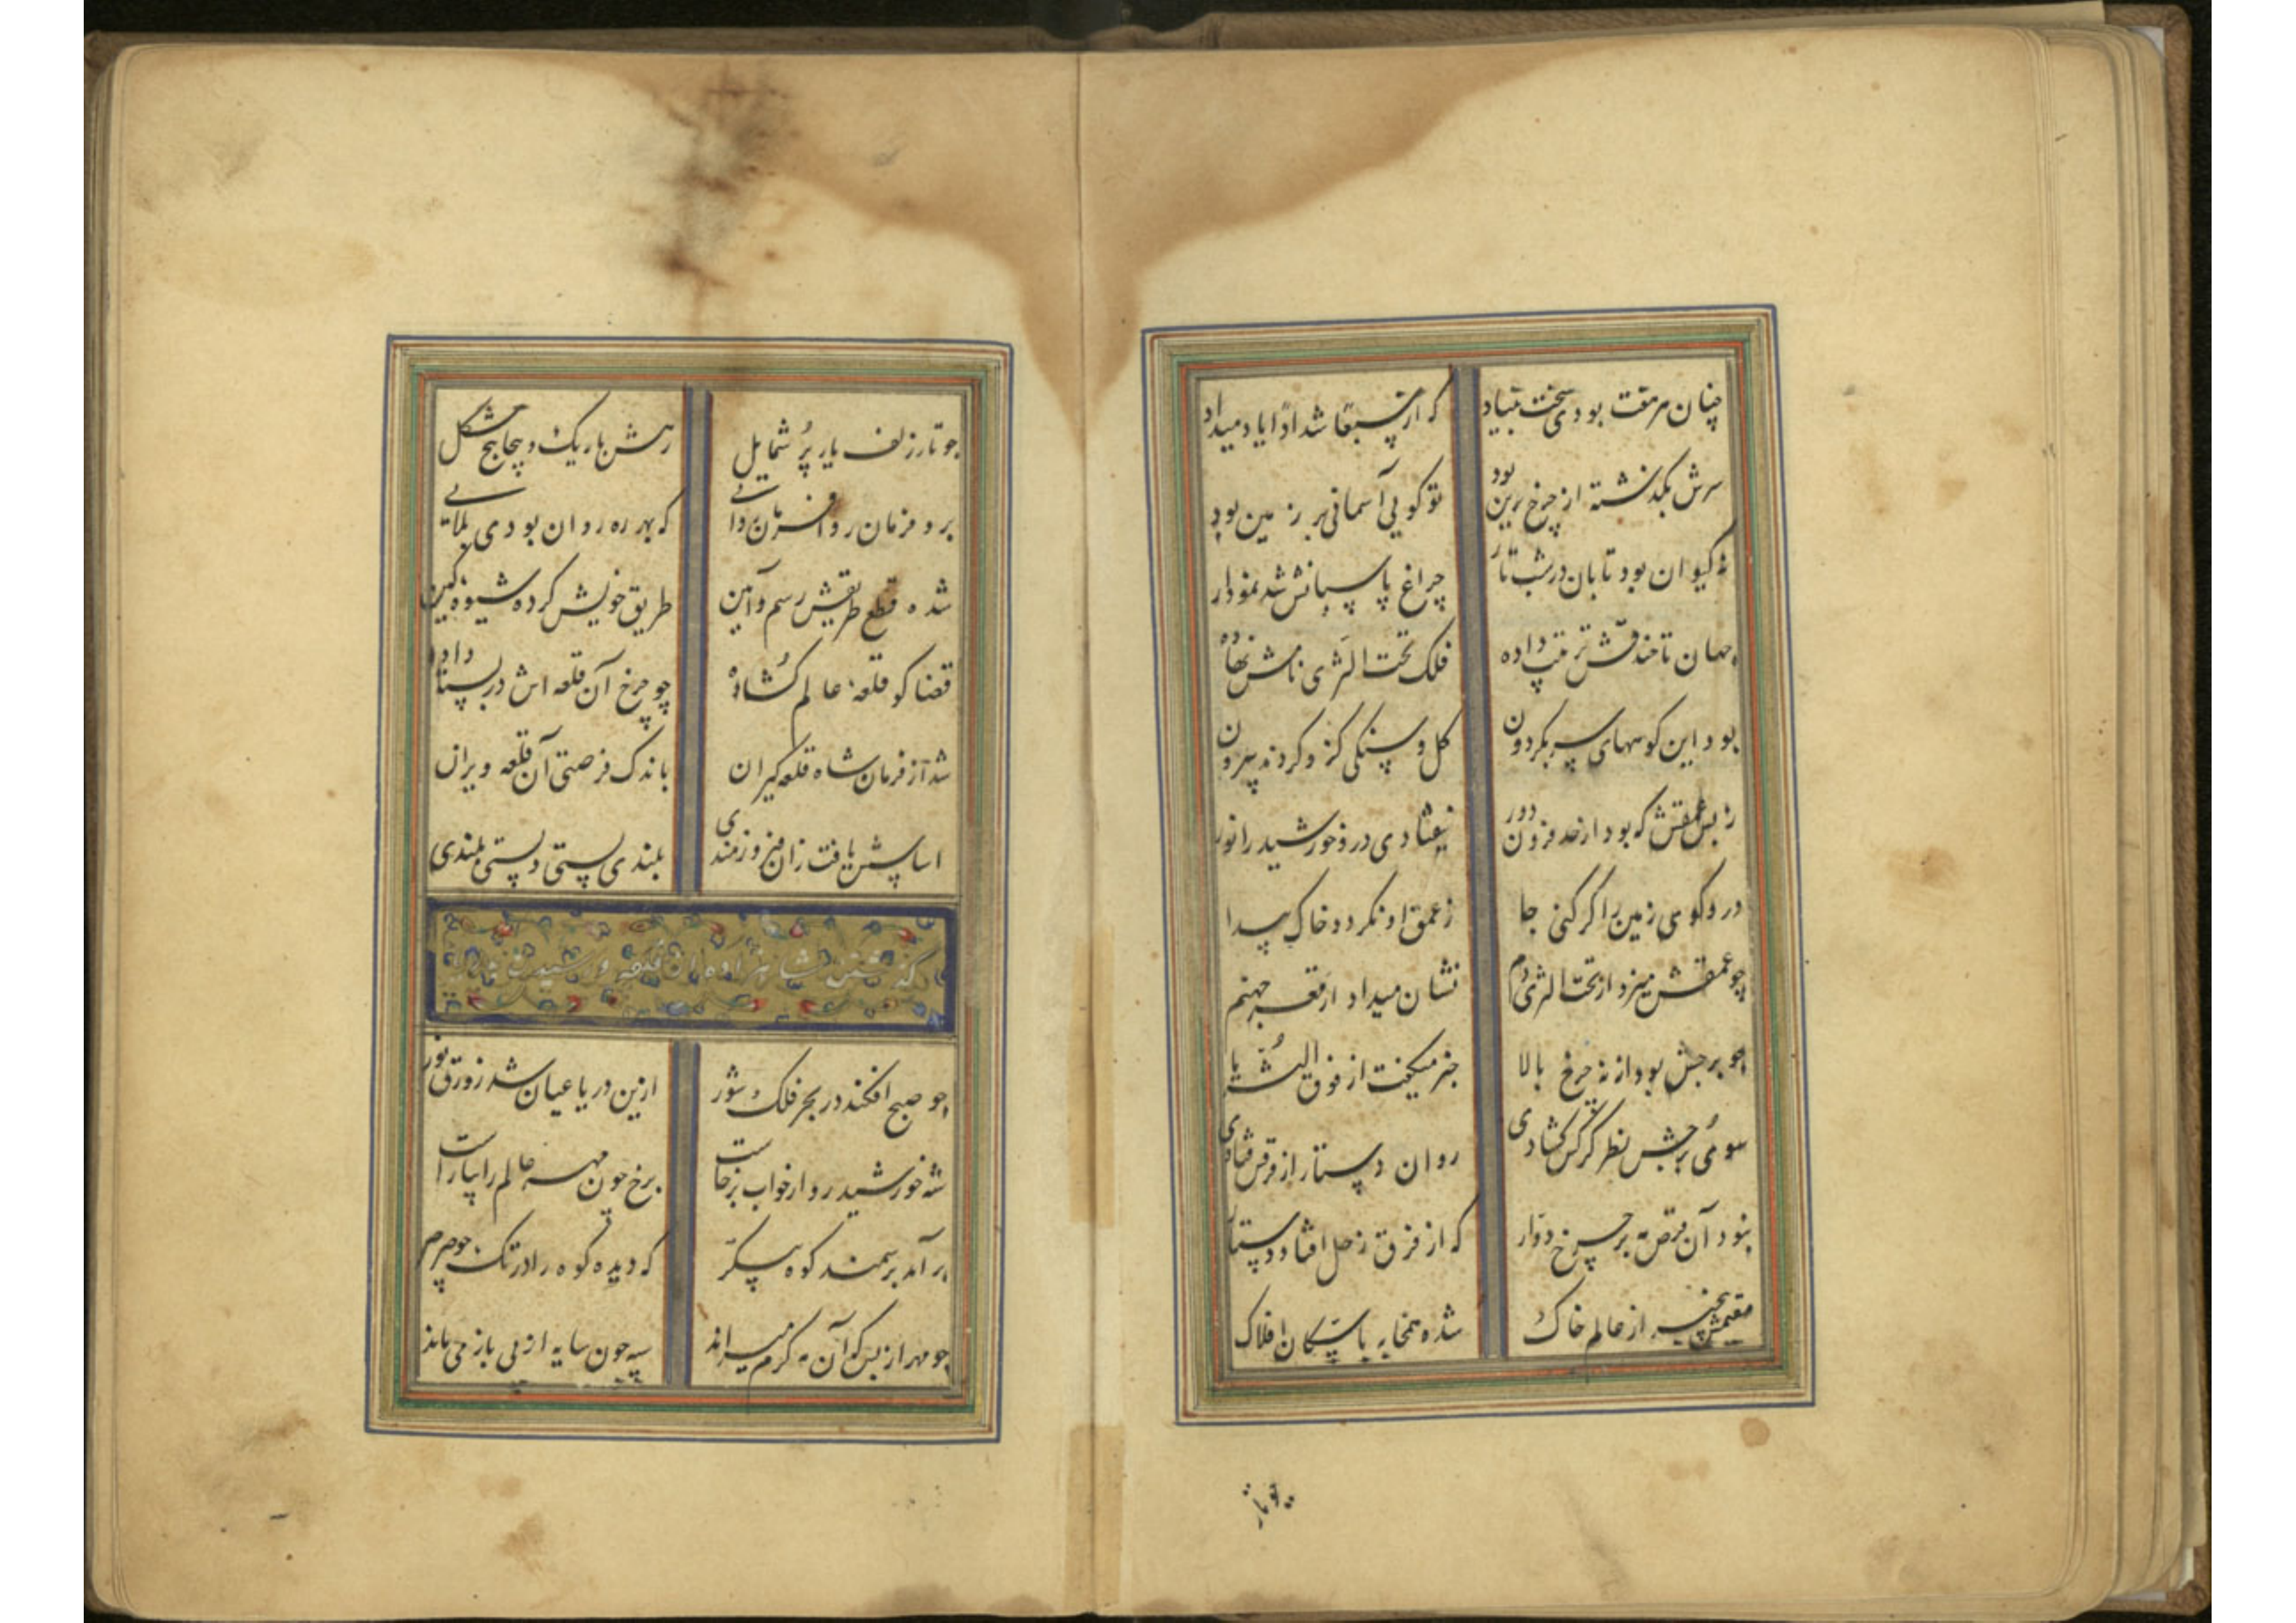 چنان سرمفت بودی سخت بنیاد که از سبعا شدادا یاد میداد
سرش یکد نشته از چرخ برین بود تو گویی آسمانی بر زمین بود
نه کیوان بود تابان در شب تار چراغ پاسبانش شد نمودار
جهان تا خندقش ترتیب داده فلک تحت الثری نامش نهاده
بود این کوههای سر بگردون گل و سنگی کزو کردند بیرون
ز بس عمقش که بود از حد فزون دور نیفتادی درو خورشید را نور
درو گوی زمین را گر کنی جا ز عمق او نگردد خاک پیدا
چو عمقش میزد از تحت الثری دم نشان میداد از قعر جهنم
چو برجش بود از نه چرخ بالا خبر میگفت از فوق الثریا
سوی برجش نظر گر کس گشادی روان دستار از فرقش فتادی
نبود آن قرص مه بر چرخ دوار که از فرق زحل افتاد دستار
مقیمش بیخبر از عالم خاک شده همخابه با سکان افلاک
چو تار
چو تار زلف یار پر شمایل رهش باریک و پیچاپیچ مشکل
برو فرمان روا فرمان روایی که بهر ره روان بودی بلایی
شده قطع طریقش رسم و آیین طریق خویش کرده شیوه کین
قضا کو قلعه عالم گشاده چو چرخ آن قلعه اش در بستا داده
شد آز فرمان شاه قلعه گیران باندک فرصتی آن قلعه ویران
اساسش یافت زان فیروزمندی بلندی پستی و پستی بلندی
گذشتن شاهزاده از قلعه و رسیدن
چو صبح افکند در بحر فلک شور ازین دریا عیان شد زورق نور
شه خورشید رو از خواب برخاست برخ چون مهر عالم را بیاراست
بر آمد بر سمند کوه پیکر که دیده کوه را در تک چو صرصر
چو مهر از بس که آن مه گرم میراند سپه چون سایه از پی باز می ماند